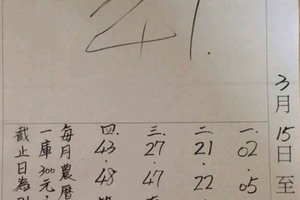 21.
3月15日至
一.02.05
二.21.22
三.27.47
四.43.48
每月農曆
一庫300元.
截止日為